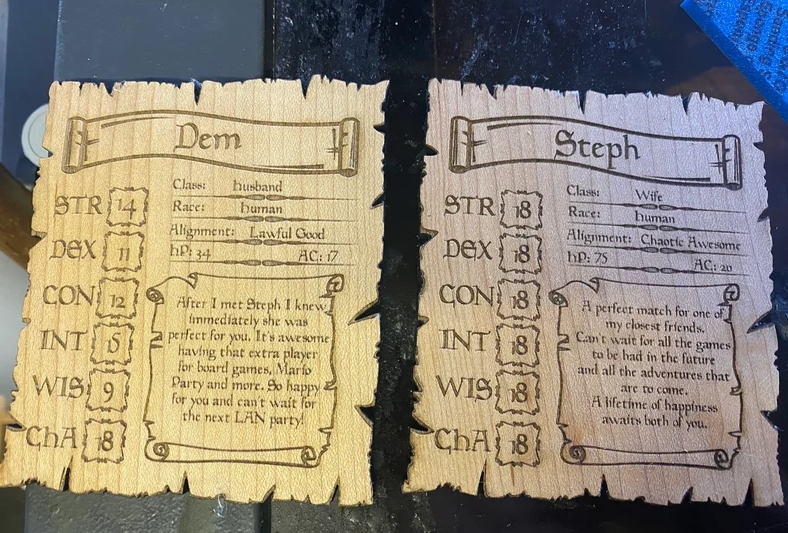 Dem
STR 14
DEX 11
CON 12
INT 15
WIS 9
ChA 18
Class: husband
Race: human
Alignment: Lawful Good
hP: 34 AC: 17
After I met Steph I knew
immediately she was
perfect for you. It's awesome
having that extra player
for board games, Mario
Party and more. So happy
for you and can't wait for
the next LAN party!
Steph
STR 18
DEX 18
CON 18
INT 18
WIS 18
ChA 18
Class: Wife
Race: human
Alignment: Chaotic Awesome
hP: 75 AC: 20
A perfect match for one of
my closest friends.
Can't wait for all the games
to be had in the future
and all the adventures that
are to come.
A lifetime of happiness
awaits both of you.